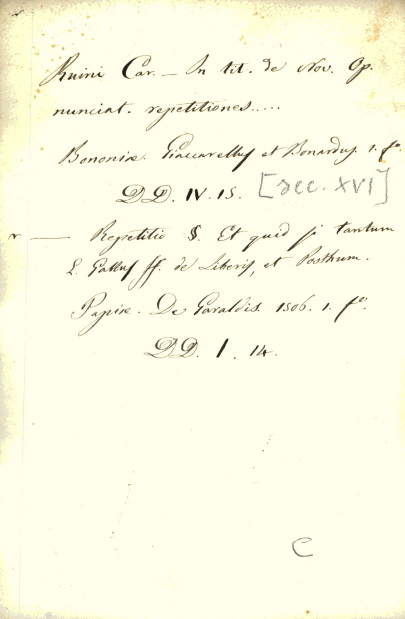 Ruini Car. — In tit. de Nov. Op.
nunciat. repetitiones.....
Bononiæ. Giaccarelluſ et Bonarduſ. 1. fº.
DD. IV. 15. [sec. XVI]
r — Repetitio §. Et quid ſi tantum
L. Galluſ ff. de Liberiſ, et Posthum.
Papiæ. De Garaldis. 1506. 1. fº.
DD. I. 14.
C